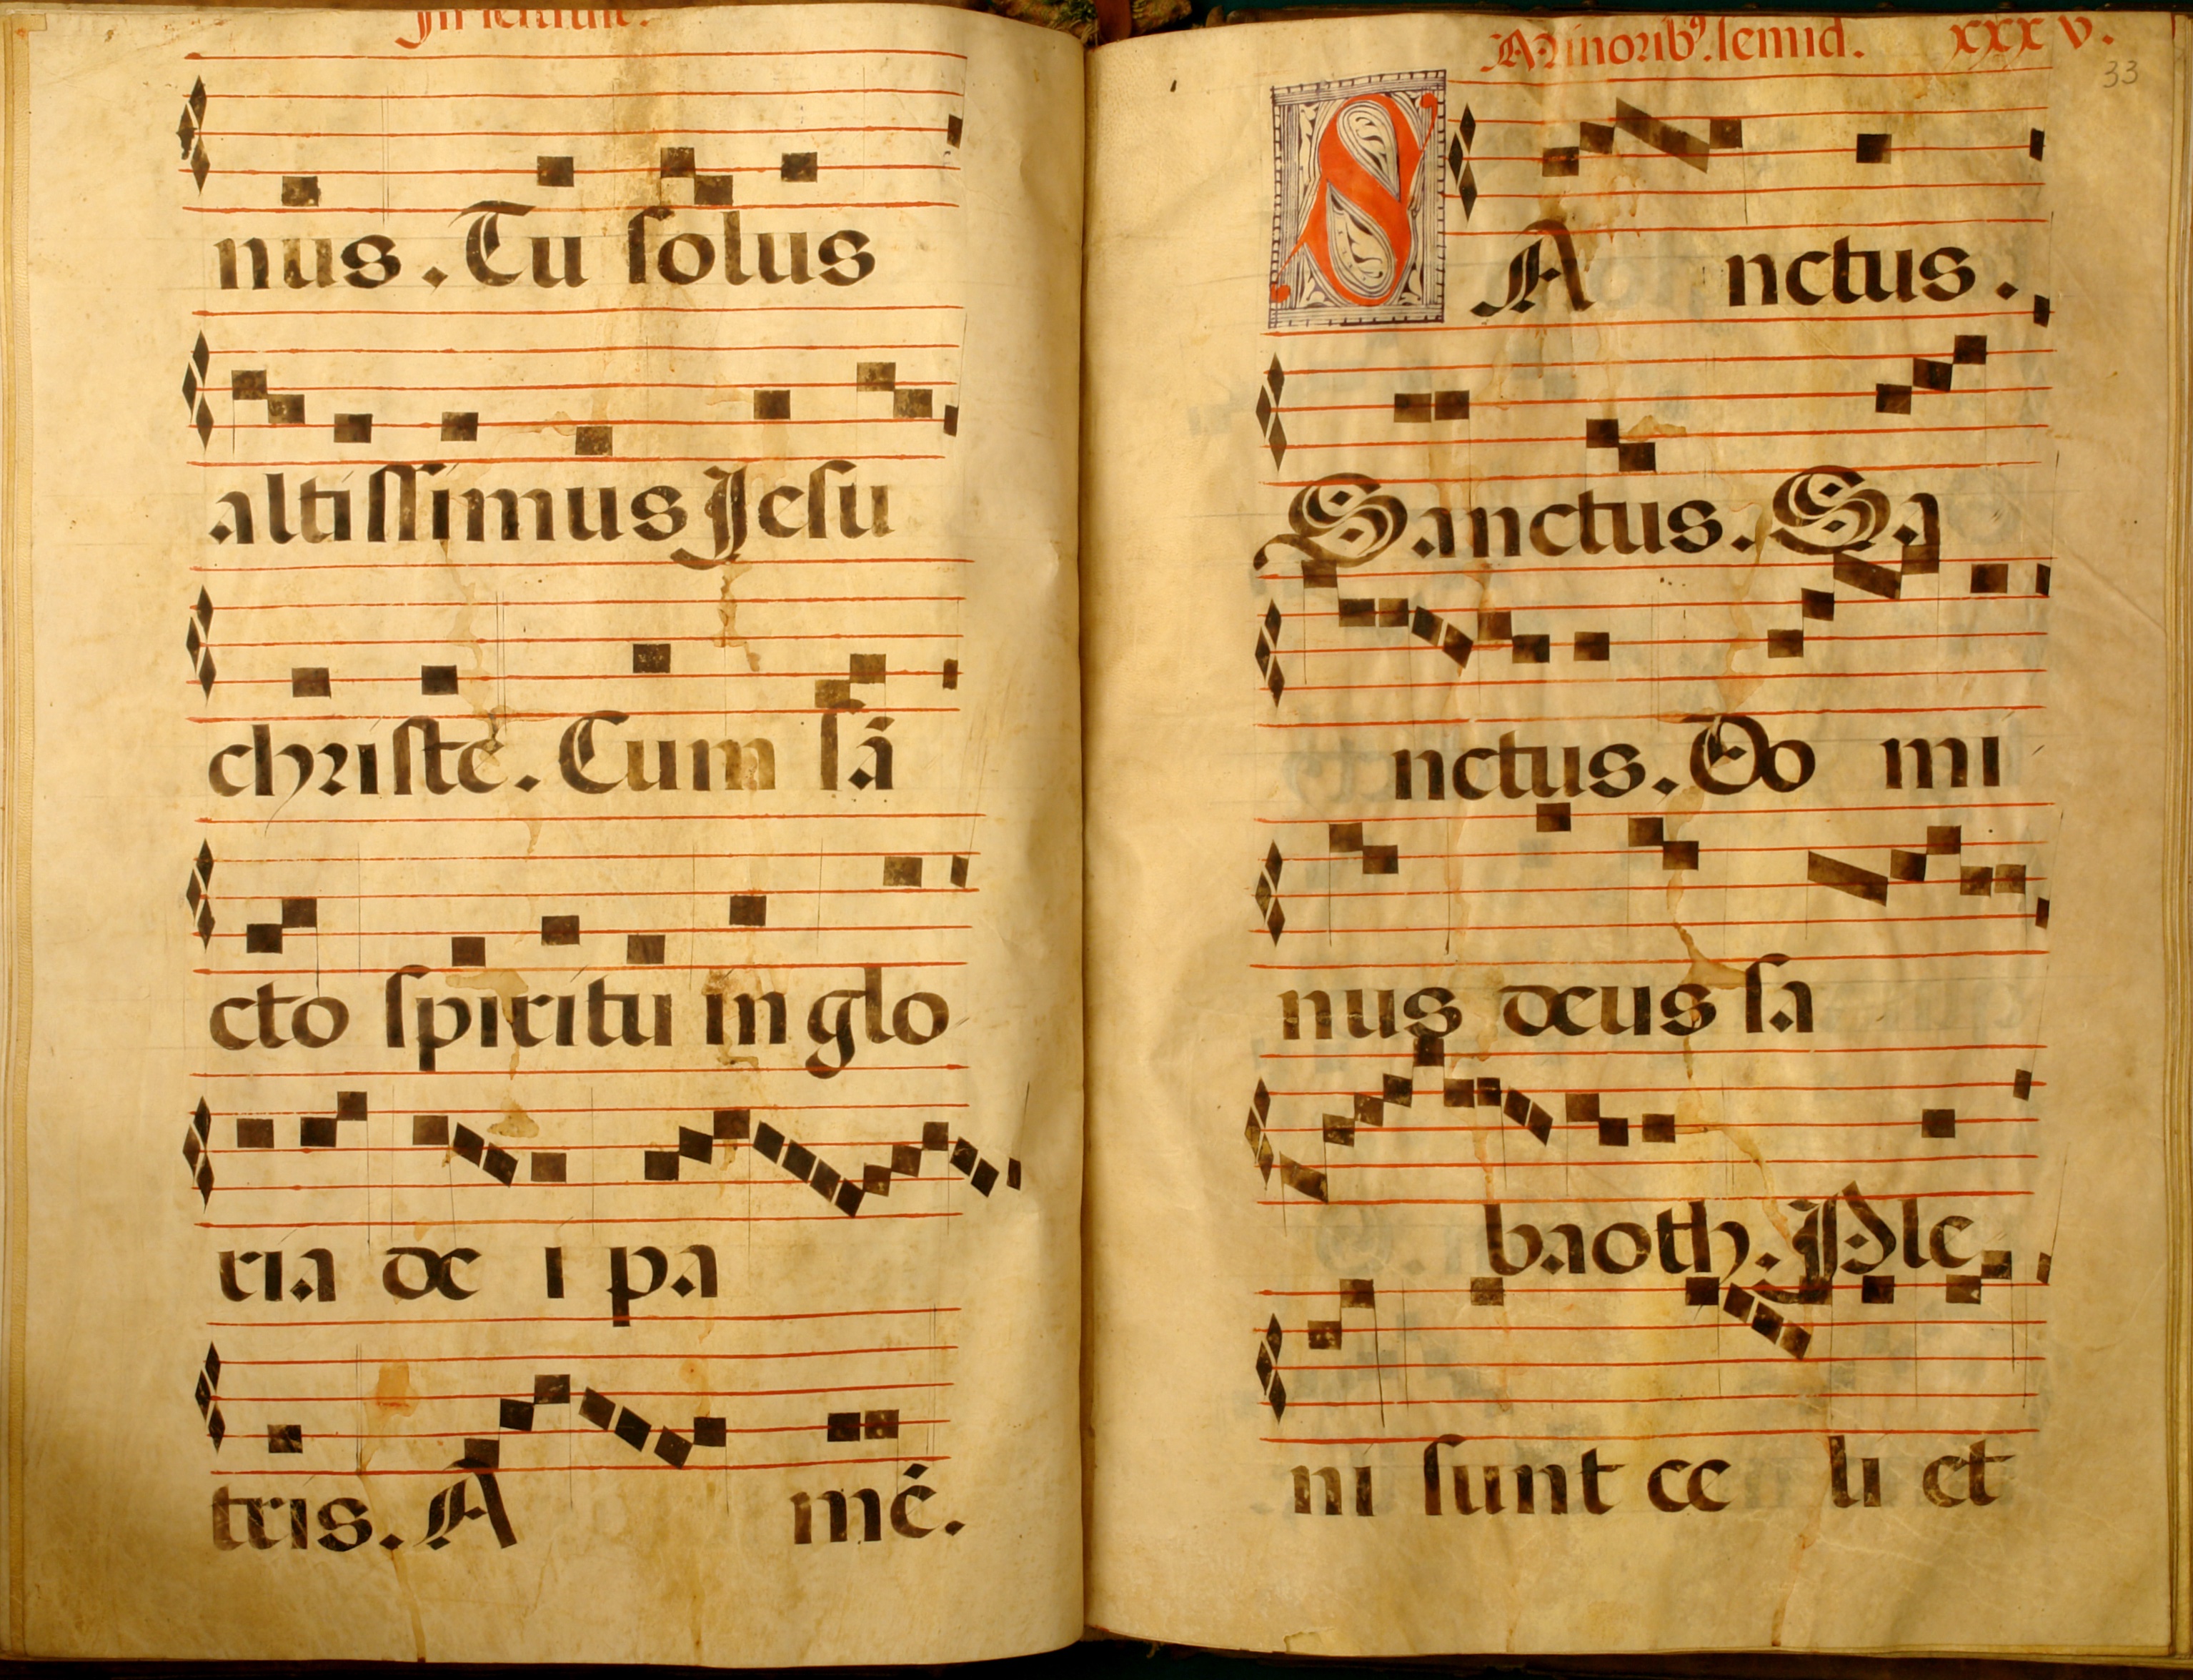 nus. Tu ſolus
altiſſimus Jeſu
chriſte. Cum ſã
cto ſpiritu in glo
ria de i pa
tris. A mē.
Minoribꝰ. ſemid. xxxv.
33
SA nctus.
Sanctus. Sa
nctus. Do mi
nus deus ſa
baoth. Ple
ni ſunt ce li et